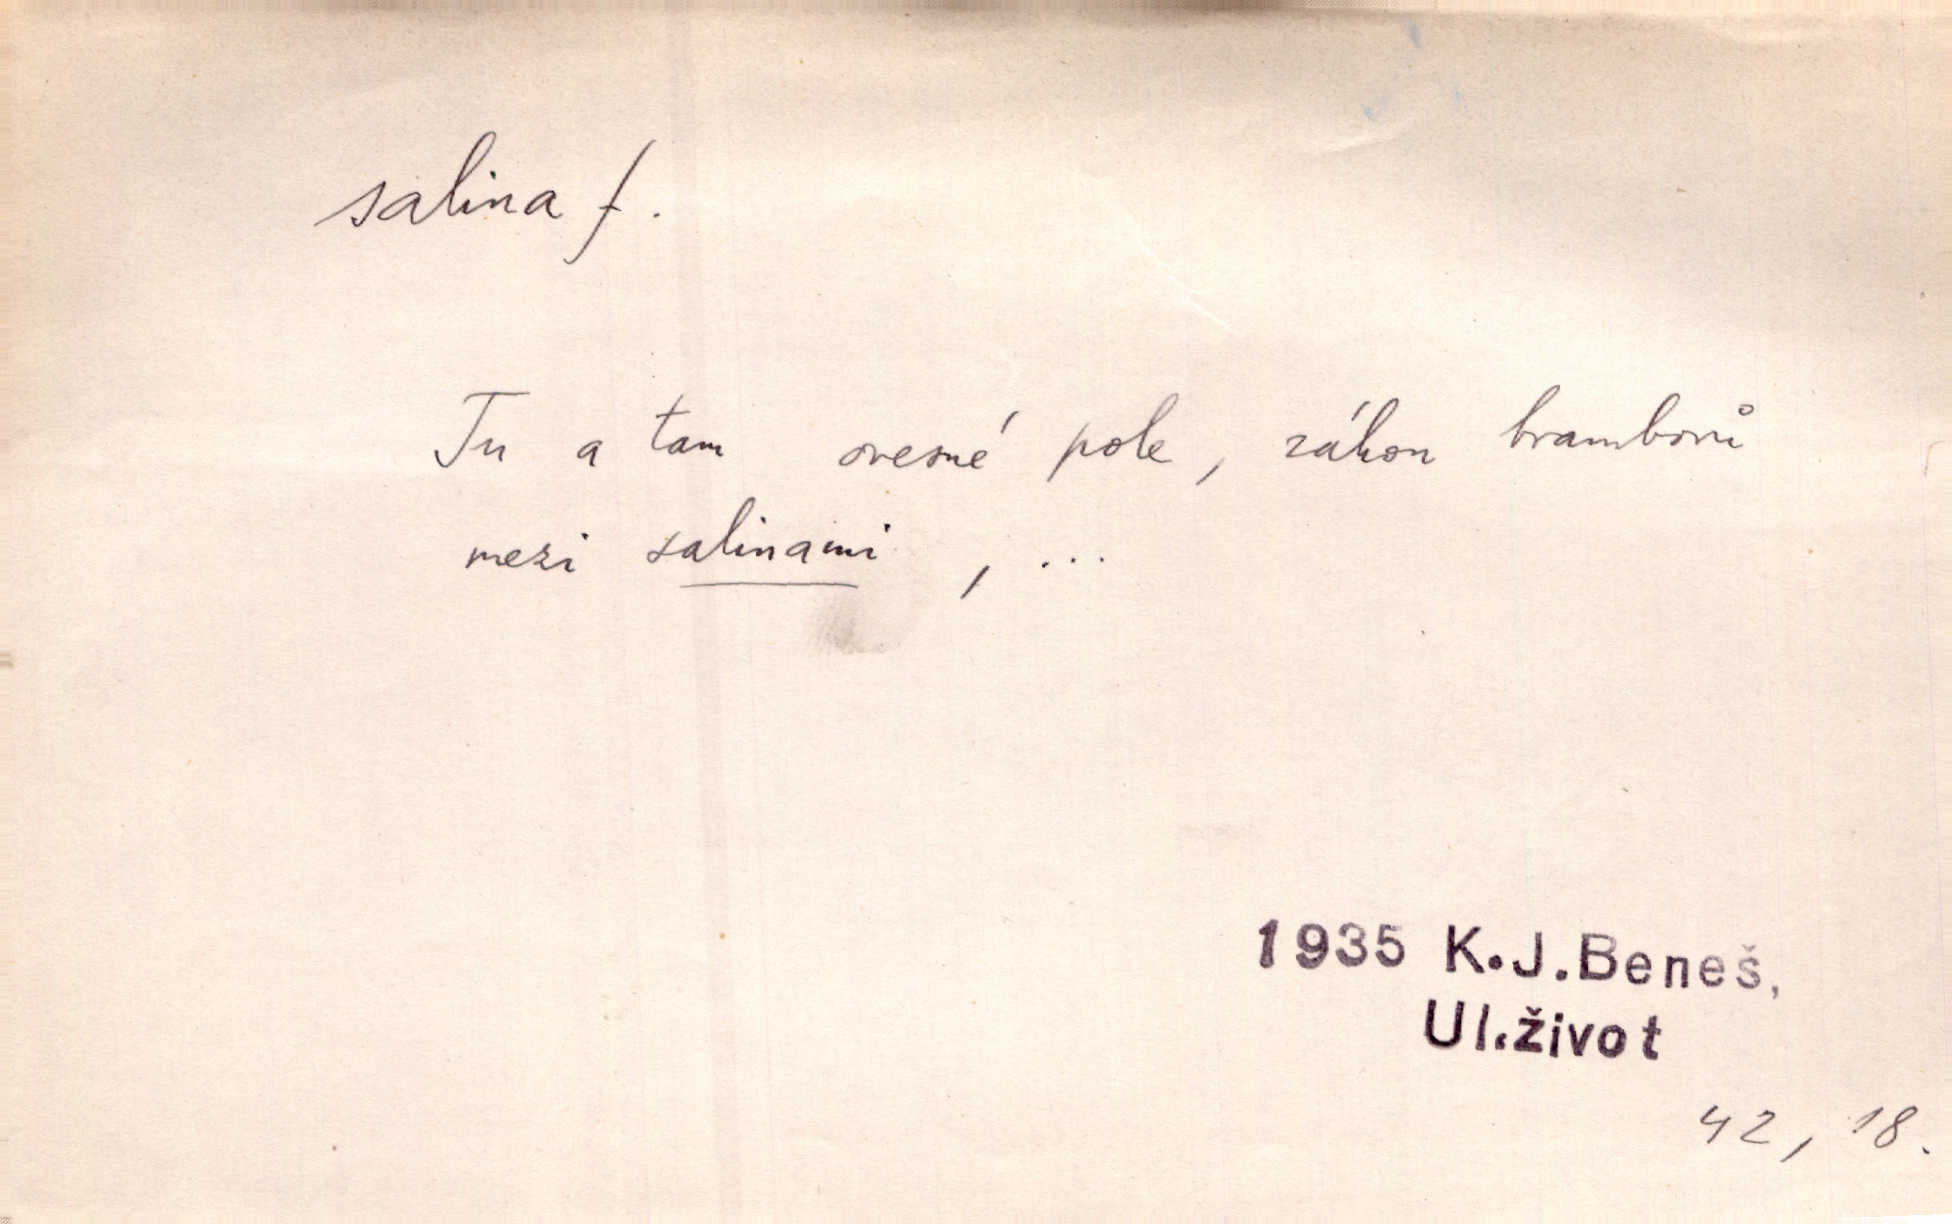 salina f.
Tu a tam ovesné pole, záhon bramborů
mezi salinami, ...
1935 K.J.Beneš,
Ul.život
42, 18.